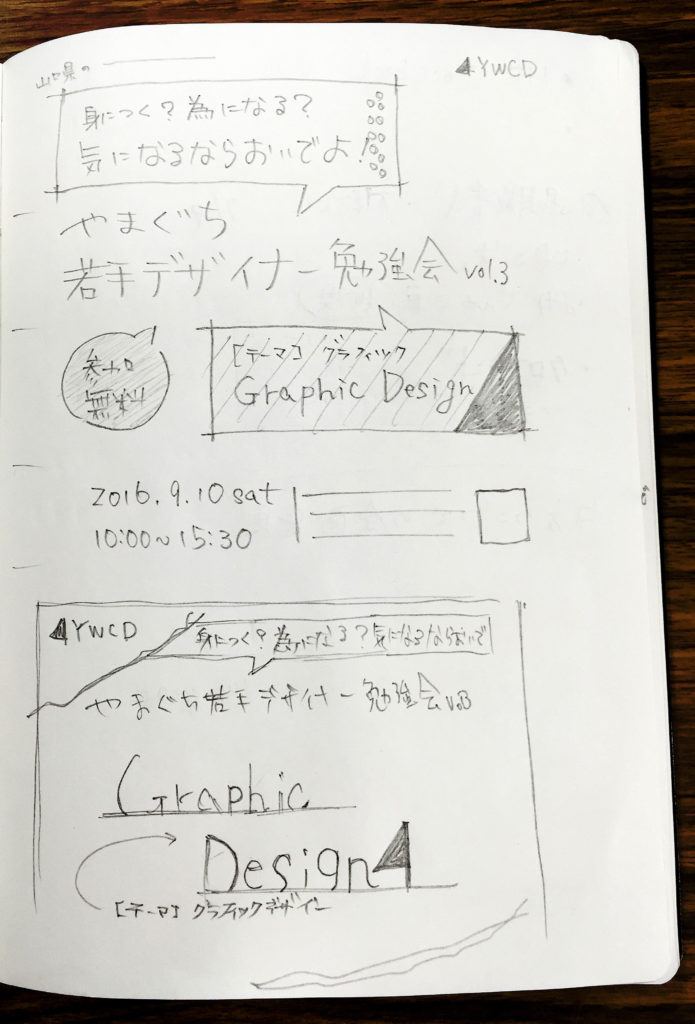 山口県の
YWCD
身につく？為になる？
気になるならおいでよ！
やまぐち
若手デザイナー勉強会 vol.3
参加
無料
[テーマ] グラフィック
Graphic Design
2016.9.10 sat
10:00~15:30
YWCD
身につく？為になる？気になるならおいで
やまぐち若手デザイナー勉強会 vol.3
Graphic
Design
[テーマ] グラフィックデザイン